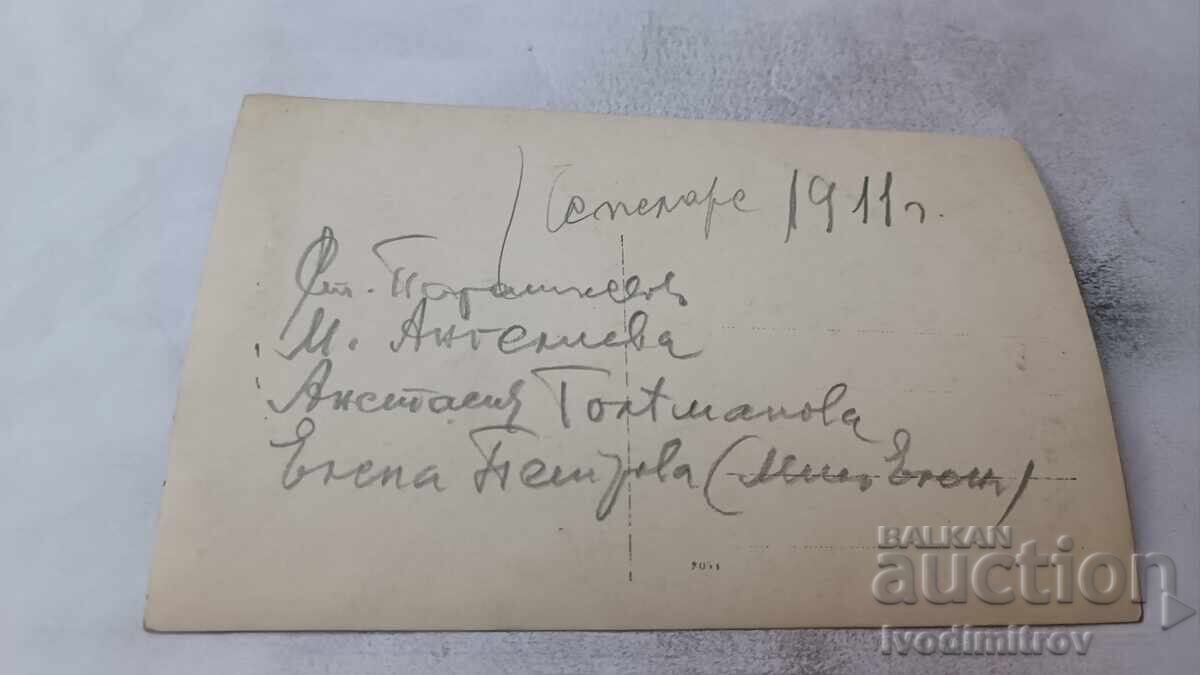 Чепеларе 1911 г.
Ст. Парашкевов
М. Ангелиева
Анастасия Голѣманова
Елена Петрова (Мис Елен)
BALKAN
auction
ivodimitrov